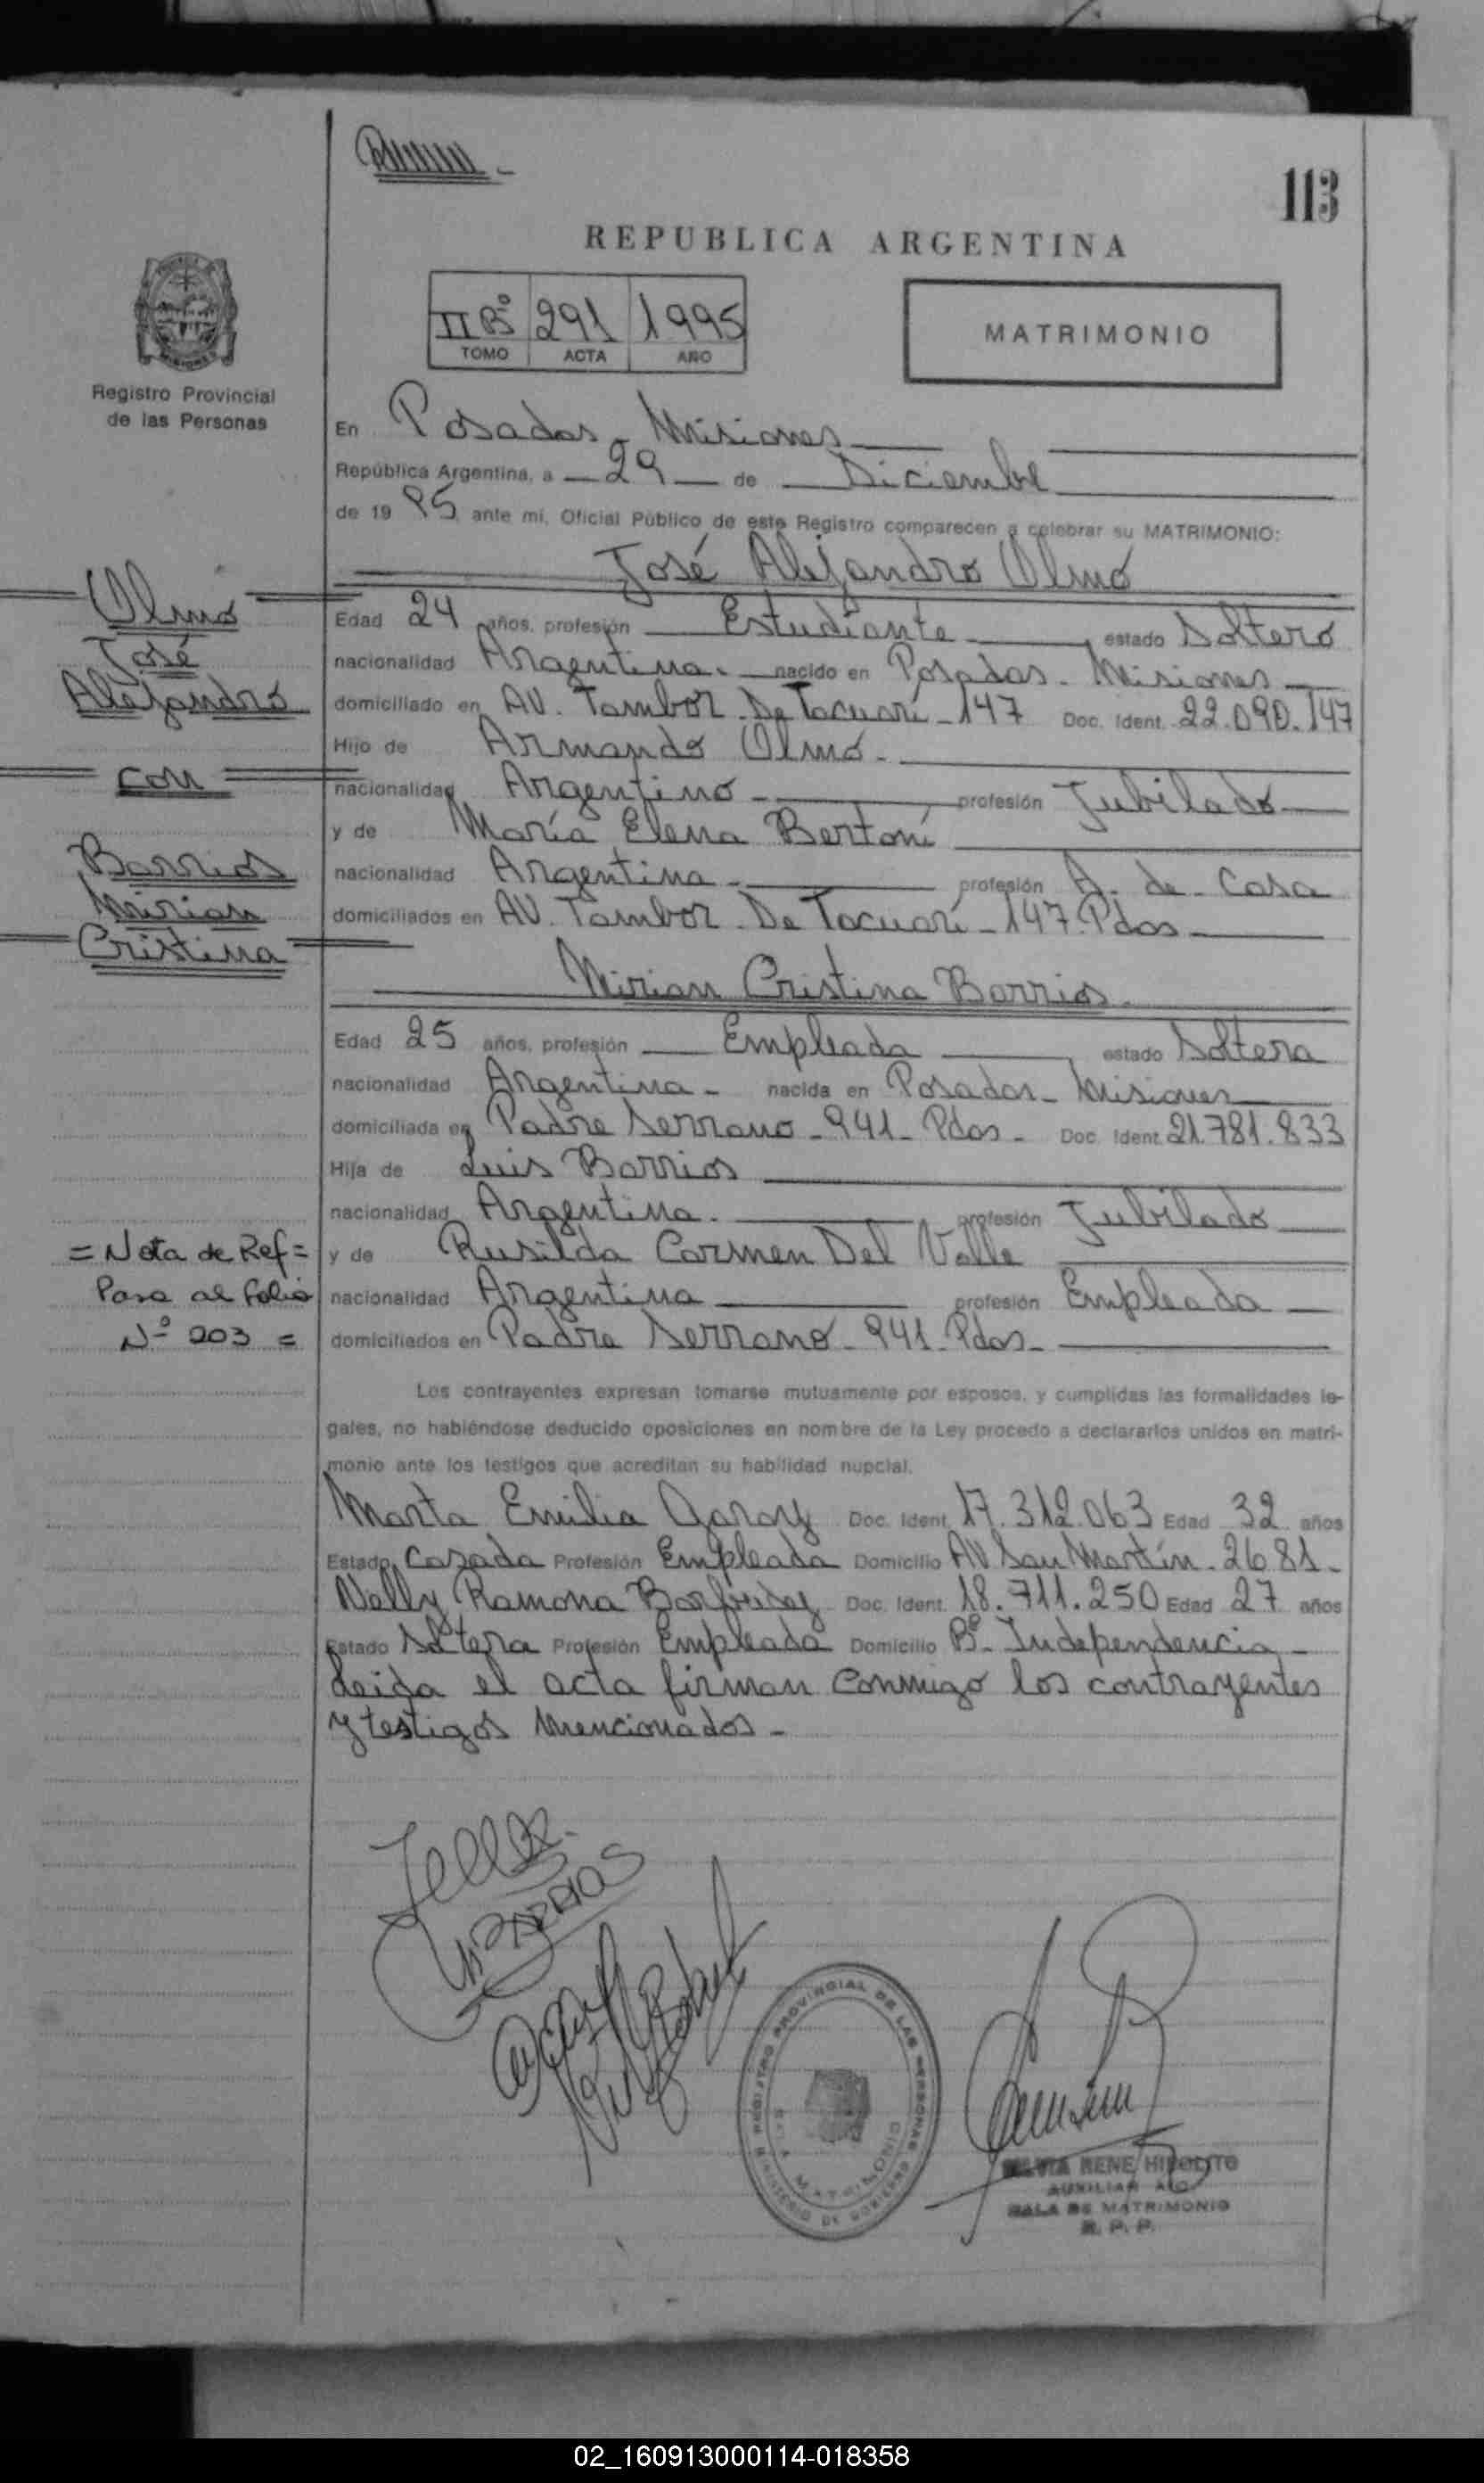 113
REPUBLICA ARGENTINA
II Bº 291 1995
TOMO ACTA AÑO
MATRIMONIO
Registro Provincial
de las Personas
En Posadas - Misiones
República Argentina, a 29 de Diciembre
de 19 95 ante mi, Oficial Público de este Registro comparecen a celebrar su MATRIMONIO:
José Alejandro Olmo
Olmo
José
Alejandro
con
Barrios
Mirian
Cristina
Edad 24 años, profesión Estudiante estado Soltero
nacionalidad Argentina. nacido en Posadas - Misiones
domiciliado en AV. Tambor De Tacuarí - 147 Doc. Ident. 22.090.147
Hijo de Armando Olmo -
nacionalidad Argentino - profesión Jubilado
y de María Elena Bertoni
nacionalidad Argentina - profesión A. de Casa
domiciliados en AV. Tambor De Tacuarí - 147. Pdas
Mirian Cristina Barrios.
Edad 25 años, profesión Empleada estado Soltera
nacionalidad Argentina - nacida en Posadas - Misiones
domiciliada en Padre Serrano - 941 - Pdas - Doc. Ident. 21.781.833
Hija de Luis Barrios
nacionalidad Argentina. profesión Jubilado
y de Rusilda Carmen Del Valle
nacionalidad Argentina profesión Empleada
domiciliados en Padre Serrano - 941 - Pdas -
= Nota de Ref =
Pasa al folio
Nº 203 =
Los contrayentes expresan tomarse mutuamente por esposos, y cumplidas las formalidades le-
gales, no habiéndose deducido oposiciones en nombre de la Ley procedo a declararlos unidos en matri-
monio ante los testigos que acreditan su habilidad nupcial.
Marta Emilia Garay Doc. Ident. 17.312.063 Edad 32 años
Estado Casada Profesión Empleada Domicilio AV San Martín - 2681 -
Nelly Ramona Doc. Ident. 18.711.250 Edad 27 años
Estado Soltera Profesión Empleada Domicilio Bº - Independencia -
Leida el acta firman conmigo los contrayentes
y testigos mencionados -
BARRIOS
REGISTRO PROVINCIAL DE LAS PERSONAS
MINISTERIO DE GOBIERNO
SALA MATRIMONIO
SILVIA RENE HIPOLITO
AUXILIAR
SALA DE MATRIMONIO
R. P. P.
02_160913000114-018358